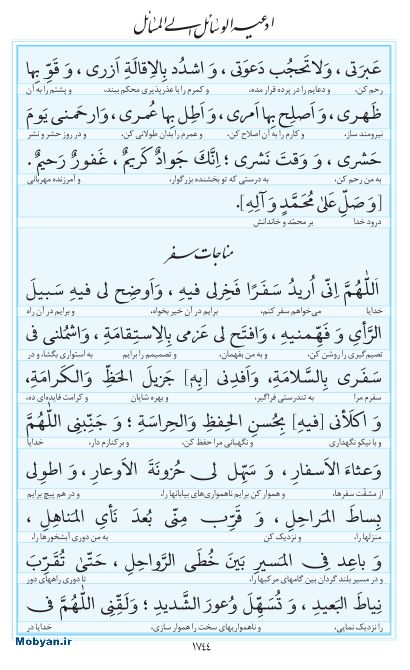 ادعیه الوسائل الی المسائل
عَبرَتی ، وَ لا تَحجُب دَعوَتی ، وَ اشدُد بِالاِقالَةِ اَزری ، وَ قَوِّ بِها
رحم کن، و دعایم را در پرده قرار مده، و کمرم را با عذرپذیری محکم ببند، و پشتم را به آن
ظَهری ، وَ اَصلِح بِها اَمری ، وَ اَطِل بِها عُمری ، وَارحَمنی یَومَ
نیرومند ساز، و کارم را به آن اصلاح کن، و عمرم را بدان طولانی کن، و در روز حشر و نشر
حَشری ، وَ وَقتَ نَشری ؛ اِنَّکَ جَوادٌ کَریمٌ ، غَفورٌ رَحیمٌ .
به من رحم کن، به درستی که تو بخشنده بزرگوار، و آمرزنده مهربانی
[وَ صَلِّ عَلیٰ مُحَمَّدٍ وَ آلِهِ].
درود خدا بر محمّد و خاندانش
مناجات سفر
اَللّٰهُمَّ اِنّی اُریدُ سَفَرًا فَخِرلی فیهِ ، وَ اَوضِح لی فیهِ سَبیلَ
خدایا می‌خواهم سفر کنم، برایم در آن خیر بخواه، و برایم در آن راه
الرَّأیِ وَ فَهِّمنیهِ ، وَ افتَح لی عَزمی بِالاِستِقامَةِ ، وَ اشمُلنی فی
تصمیم‌گیری را روشن کن، و به من بفهمان، و تصمیمم را برایم به استواری بگشا، و در
سَفَری بِالسَّلامَةِ، وَ اَفِدنی [بِهِ] جَزیلَ الحَظِّ وَالکَرامَةِ،
سفرم مرا به تندرستی فراگیر، و بهره شایان و کرامت فایده‌ای ده،
وَ اکلَأنی [فیهِ] بِحُسنِ الحِفظِ وَالحِراسَةِ ؛ وَ جَنِّبنِی اللّٰهُمَّ
و با نیکو نگهداری و نگهبانی مرا حفظ کن، و بر کنارم دار، خدایا
وَعثاءَ الاَسفارِ ، وَ سَهِّل لی حُزونَةَ الاَوعارِ ، وَ اطوِلی
از مشقّت سفرها، و هموار کن برایم ناهمواری‌های بیابانها را، و در هم پیچ برایم
بِساطَ المَراحِلِ ، وَ قَرِّب مِنّی بُعدَ نَأیِ المَناهِلِ ،
منزلها را، و نزدیک کن به من دوری آبشخورها را،
وَ باعِد فِی المَسیرِ بَینَ خُطَی الرَّواحِلِ ، حَتّیٰ تُقَرِّبَ
و در مسیر بلند گردان بین گامهای مرکبها را، تا دوری راههای دور
نِیاطَ البَعیدِ ، وَ تُسَهِّلَ وُعورَ الشَّدیدِ ؛ وَ لَقِّنِی اللّٰهُمَّ فی
را نزدیک نمایی، و ناهمواریهای سخت را هموار سازی، خدایا در
۱۷۴۴
Mobyan.ir